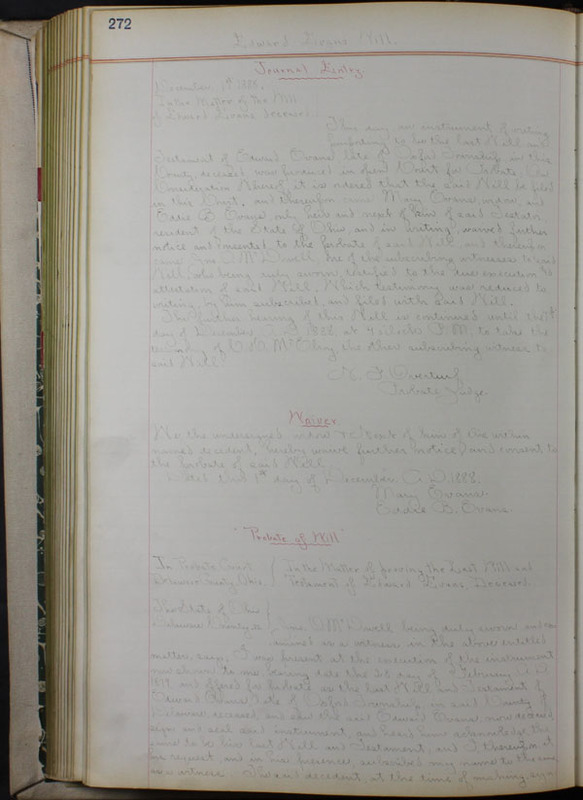 272
Edward Evans Will.
Journal Entry.
December 1st 1888.
In the Matter of the Will
of Edward Evans deceased.
This day an instrument of writing
purporting to be the last Will and
Testament of Edward Evans late of Township in this
County, deceased, was produced in open Court for Probate. On
Consideration Whereof, it is ordered that the said Will be filed
in this Court, and thereupon came Mary Evans, widow, and
Eddie B. Evans only heir and next of Kin of said Testator
resident of the State of Ohio, and in writing, waived further
notice and consented to the probate of said Will, and thereupon
came one of the subscribing witnesses to said
Will, who being duly sworn, testified to the due execution &
attestation of said Will. Which testimony was reduced to
writing, by him subscribed, and filed with said Will.
The further hearing of this Will is continued until the
day of December A.D. 1888, at o'clock P.M. to take the
testimony of the other subscribing witness to
said Will.
Probate Judge.
Waiver
We the undersigned widow & next of Kin of the within
named decedent, hereby waive further notice, and consent to
the probate of said Will.
Dated this 1st day of December A.D. 1888.
Mary Evans
Eddie B. Evans
"Probate of Will"
In Probate Court In the Matter of proving the Last Will and
Delaware County, Ohio. Testament of Edward Evans, Deceased.
The State of Ohio
Delaware County, ss being duly sworn and ex-
amined as a witness in the above entitled
matter, says, I was present at the execution of the instrument
now shown to me bearing date the 28 day of February A.D.
and offered for probate as the last Will and Testament of
Edward Evans late of Township, in said County of
Delaware deceased and saw the said Edward Evans now deceased
sign and seal said instrument, and heard him acknowledge the
same to be his last Will and Testament, and I thereupon at
his request, and in his presence, subscribed my name to the same
as a witness. The said decedent, at the time of making, sign